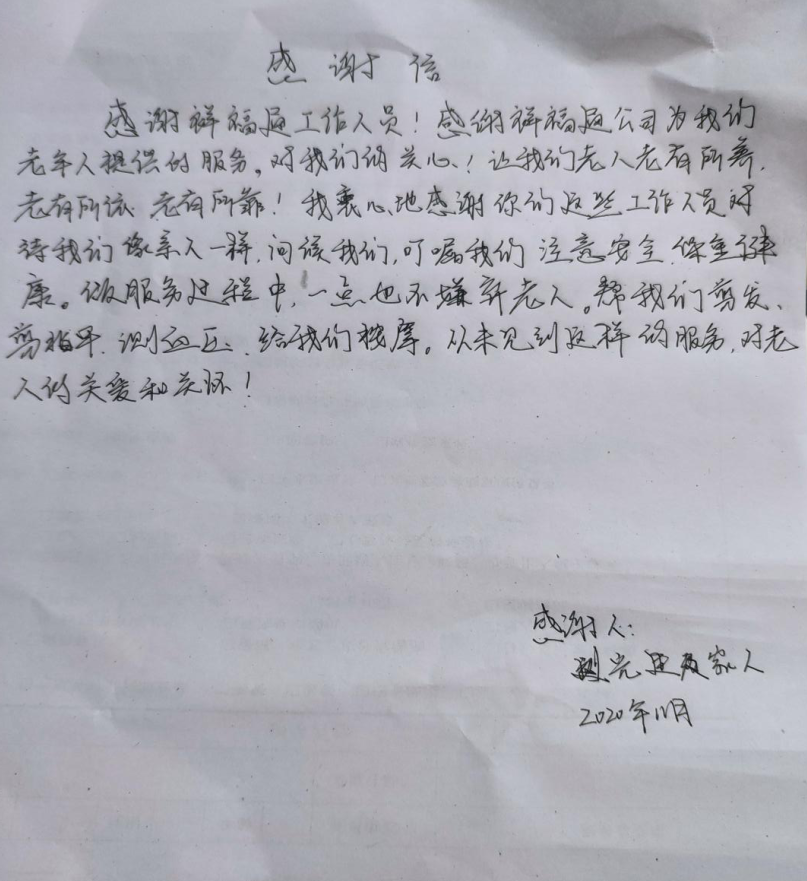 感谢信
感谢祥福通工作人员！感谢祥福通公司为我们
老年人提供的服务。对我们的关心！让我们老人老有所养.
老有所依 老有所靠！我衷心地感谢你们这些工作人员对
待我们像亲人一样,问候我们,叮嘱我们 注意安全.保重身体
康。做服务过程中,一点也不嫌弃老人。帮我们剪发、
剪指甲.测血压.给我们按摩。从未见到这样的服务,对老
人的关爱和关怀！
感谢人：
光 及家人
2020年11月